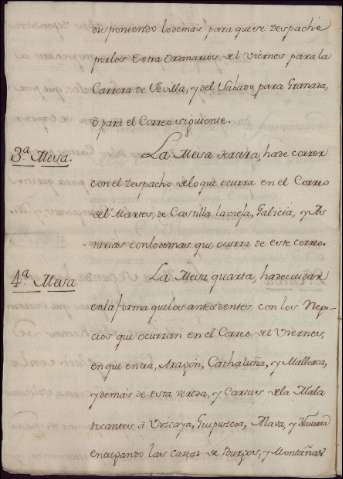 disponiendo lo demas para que se despache
por los Extraordinarios del Viernes para la
Carrera de Sevilla, y del Sabado para Granada,
ò para el Correo siguiente.
3.ª Mesa. La Mesa tercera, ha de correr
con el despacho de lo que ocurra en el Correo
del Martes, de Castilla la vieja, Galicia, y As-
turias con lo demas que ocurra de este correo.
4.ª Mesa La Mesa quarta, ha de cuidar
en la forma que los antecedentes, con los Nego-
cios que ocurran en el Correo del Viernes,
en que entra, Aragon, Cathaluña, y Mallorca,
y demás de esta rueda, y Cartas de la Mala
tocantes à Vizcaya, Guipuzcoa, Alava, y Navarra
encargando las cartas de Burgos, y Montañas